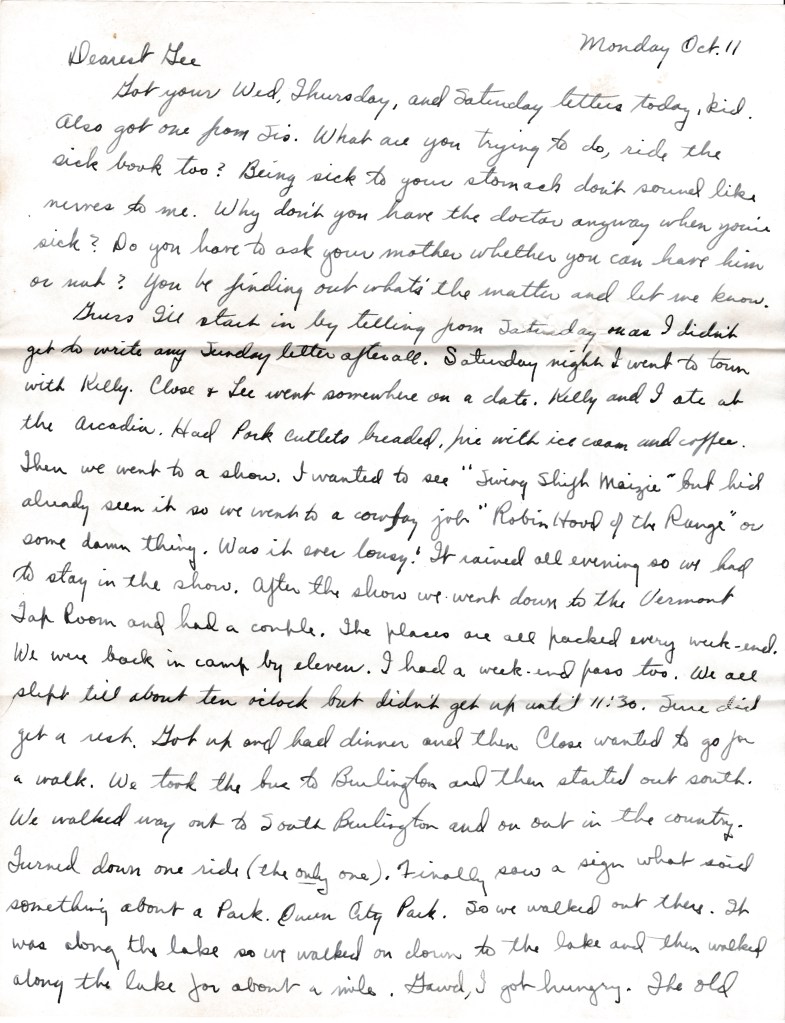 Monday Oct. 11
Dearest Gee
Got your Wed, Thursday, and Saturday letters today, kid.
Also got one from Sis. What are you trying to do, ride the
sick book too? Being sick to your stomach don't sound like
nerves to me. Why don't you have the doctor anyway when you're
sick? Do you have to ask your mother whether you can have him
or not? You be finding out what's the matter and let me know.
Guess I'll start in by telling from Saturday on as I didn't
get to write any Sunday letter after all. Saturday night I went to town
with Kelly. Close & Lee went somewhere on a date. Kelly and I ate at
the Arcadia. Had Pork cutlets breaded, pie with ice cream and coffee.
Then we went to a show. I wanted to see "Swing Shift Maizie" but he'd
already seen it so we went to a cowboy job "Robin Hood of the Range" or
some damn thing. Was it ever lousy! It rained all evening so we had
to stay in the show. After the show we went down to the Vermont
Tap Room and had a couple. The places are all packed every week-end.
We were back in camp by eleven. I had a week-end pass too. We all
slept till about ten o'clock but didn't get up until 11:30. Sure did
get a rest. Got up and had dinner and then Close wanted to go for
a walk. We took the bus to Burlington and then started out south.
We walked way out to South Burlington and on out in the country.
Turned down one ride (the only one). Finally saw a sign what said
something about a Park. Queen City Park. So we walked out there. It
was along the lake so we walked on down to the lake and then walked
along the lake for about a mile. Gawd, I got hungry. The old